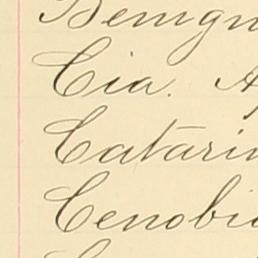 Benign
Cia. A
Catarin
Cenobi